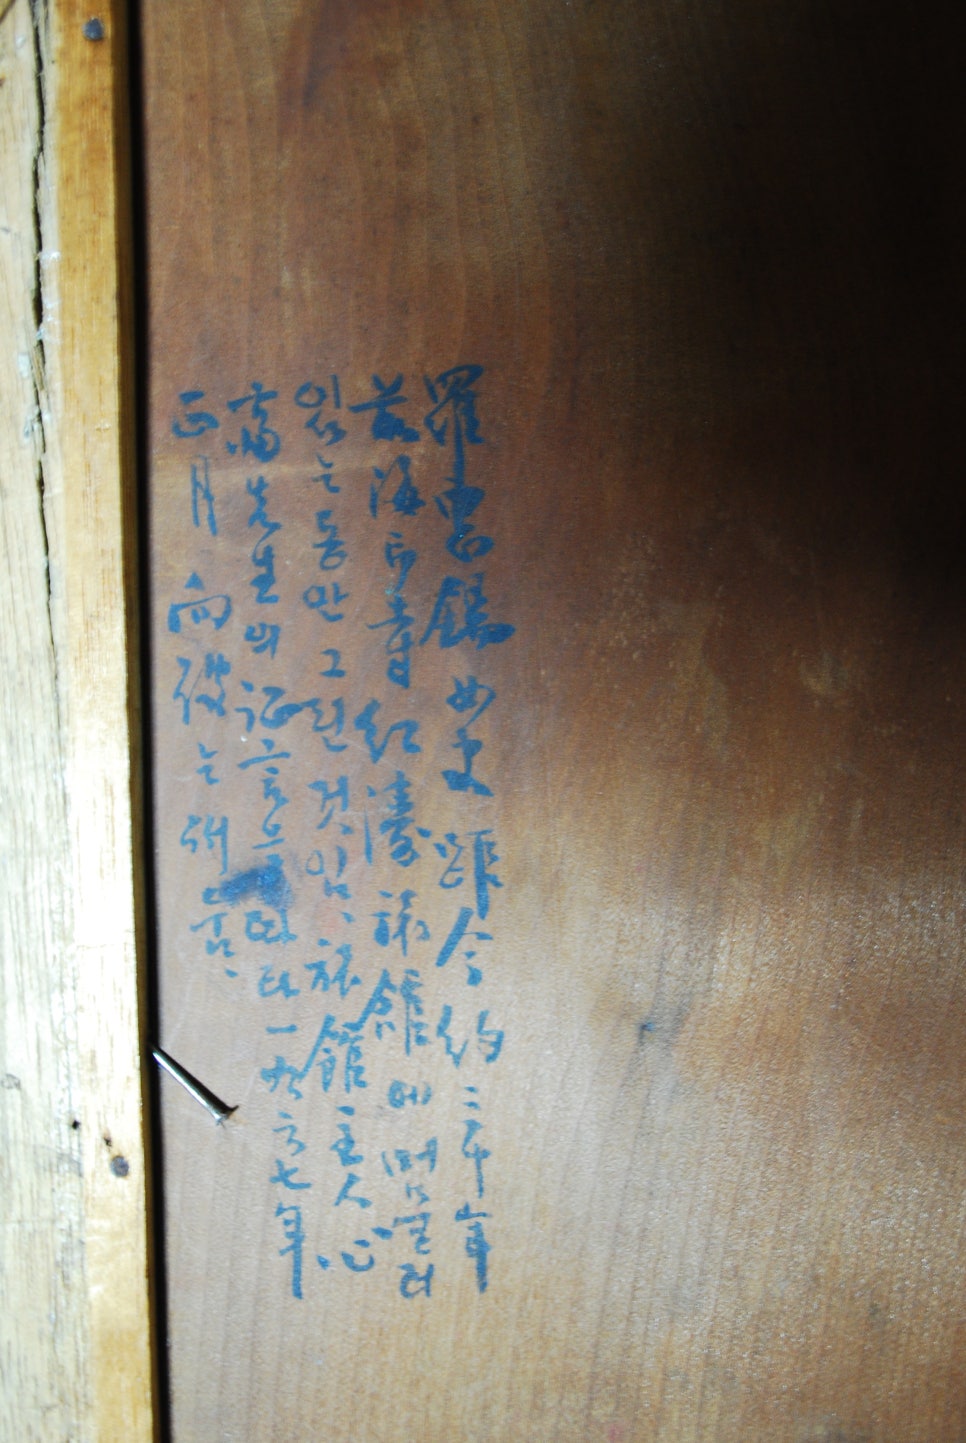 羅蕙錫 女史 距今 約 三十年
前 海印寺 紅濤旅館에 머물러
있는 동안 그린 것임、旅館主人 心
高先生의 証言으로 一九六七年
正月、向破는